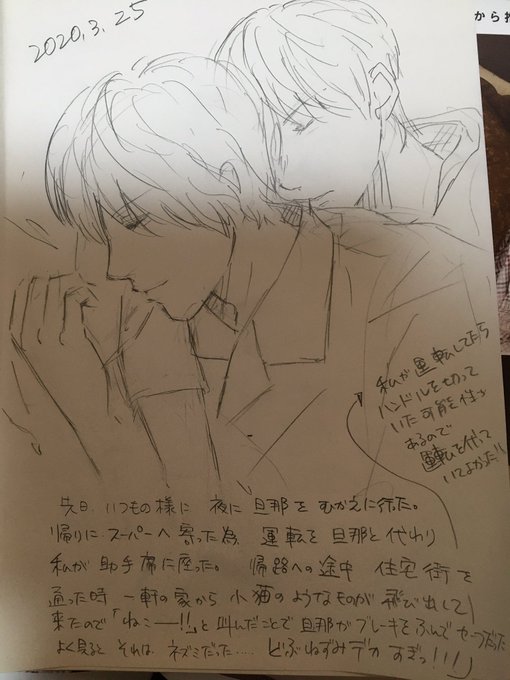 2020.3.25
から
私が運転してたら
ハンドルを切って
いた可能性が
あるので
運転を代って
いてよかった!!
先日、いつもの様に 夜に旦那をむかえに行った。
帰りにスーパーへ寄った為 運転を旦那と代わり
私が助手席に座った。 帰路への途中 住宅街を
通った時 一軒の家から 小猫のようなものが 飛び出して
来たので「ねこーー!!」と叫んだことで旦那がブレーキをふんでセーフだった
よく見ると それは ネズミだった…… どぶねずみデカすぎっ!!!